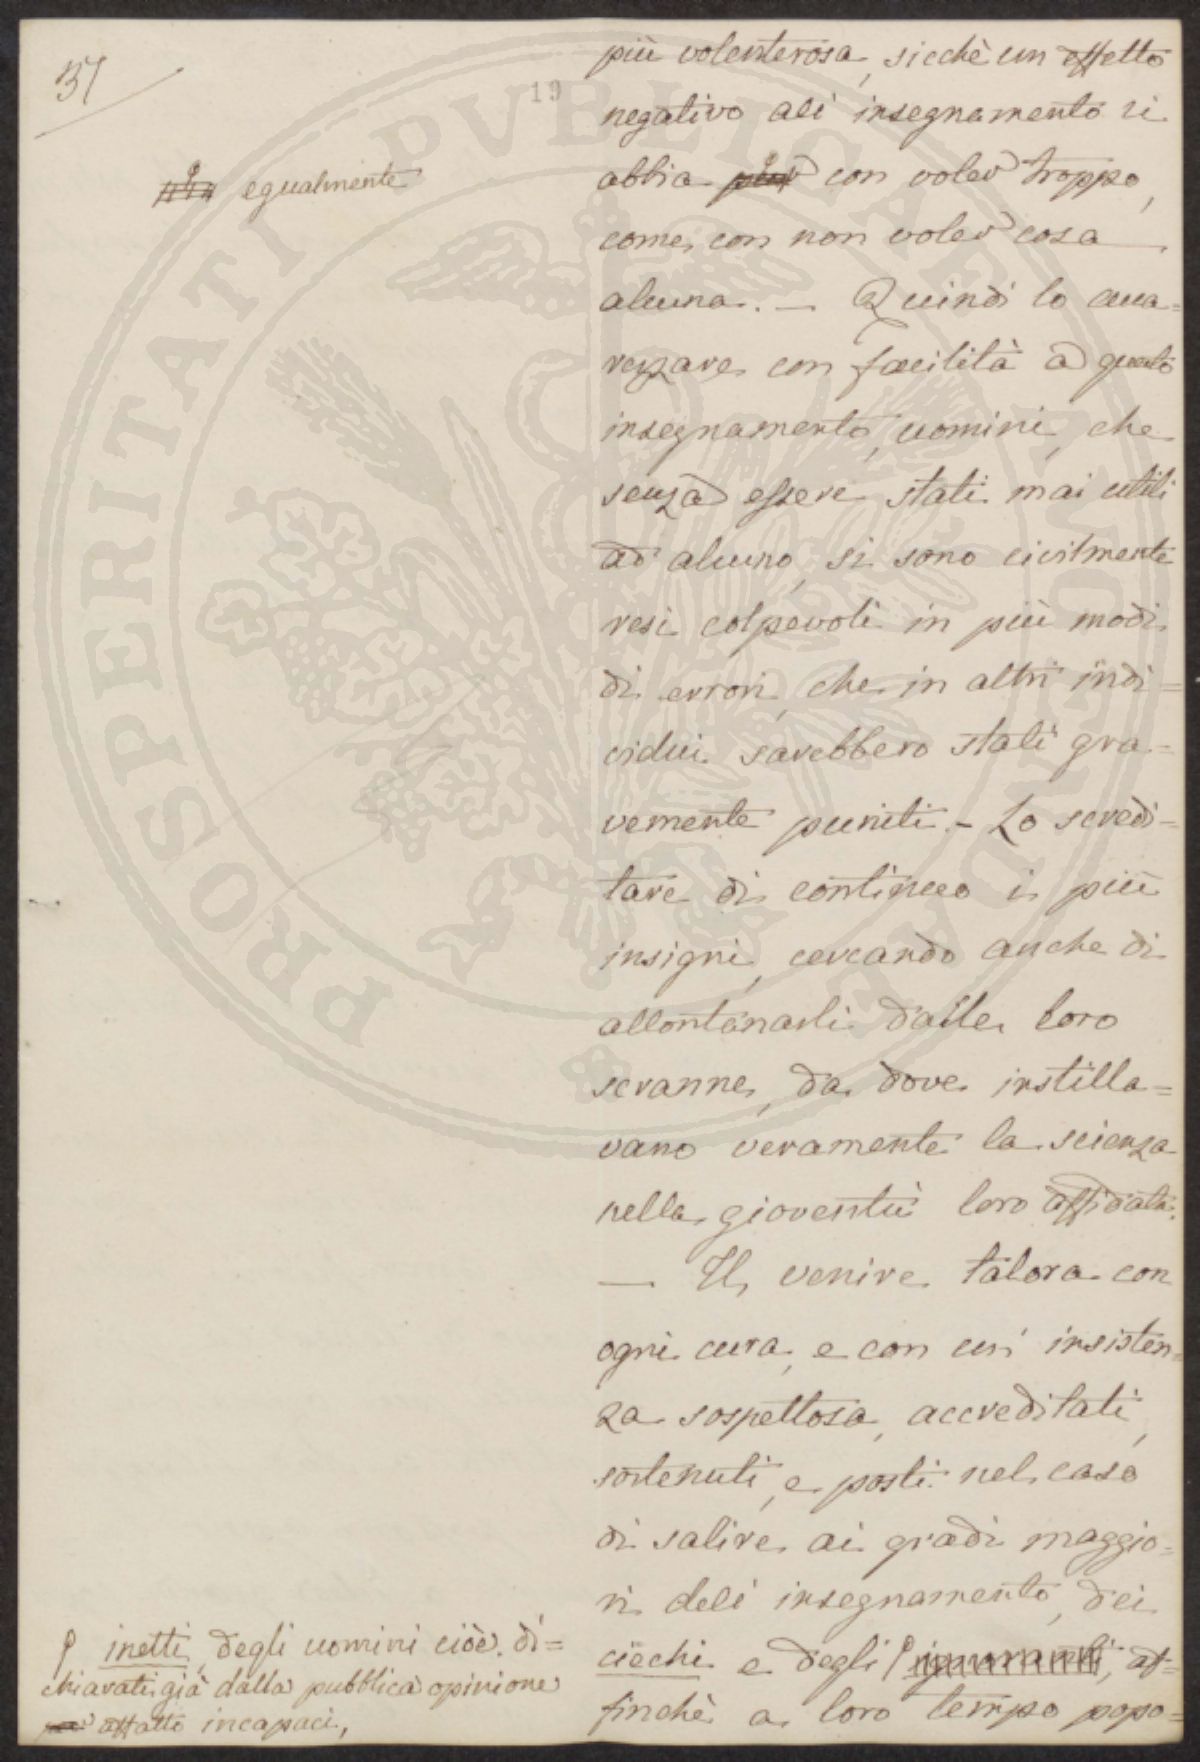 51
19
egualmente
più volenterosa, sicchè un effetto
negativo all' insegnamento si
abbia pur con voler troppo,
come con non voler cosa
alcuna. — Quindi lo auta-
rezzare con facilità a questo
insegnamento, uomini, che
senza essere stati mai utili
ad alcuno, si sono civilmente
resi colpevoli in più modi
di errori, che in altri indi=
vidui sarebbero stati gra=
vemente puniti. — Lo scredi=
tare di continuo i più
insigni, cercando anche di
allontanarli dalle loro
scranne, da dove instilla=
vano veramente la scienza
nella gioventù loro affidata.
— Il venire talora con
ogni cura, e con un' insisten=
za sospettosa, accreditati,
sostenuti, e posti nel caso
di salire ai gradi maggio=
ri dell' insegnamento, dei
ciechi e degli ignoranti, af=
finchè a loro tempo popo=
inetti, degli uomini cioè di=
chiarati già dalla pubblica opinione
affatto incapaci,
PROSPERITATI PVBLICAE AVGENDAE